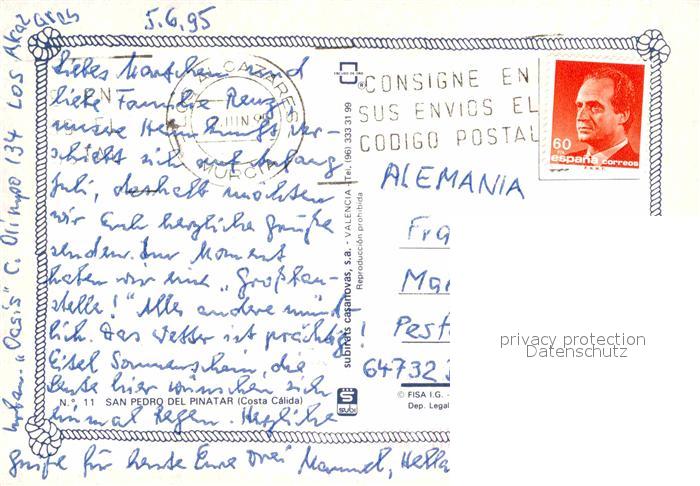 5.6.95
Liebes Mariechen und
liebe Familie Renz!
unsere Heimkunft ver-
schiebt sich auf Anfang
Juli, deshalb möchten
wir Euch herzliche Grüße
senden. Im Moment
haben wir eine „Großbau-
stelle!" Alles andere münd-
lich. Das Wetter ist prächtig!
Eitel Sonnenschein, die
Leute hier wünschen sich
einmal Regen. Herzliche
Grüße für heute Eure drei Manuel, Hella
Urban. „Oasis" C. Olimpo 134 LOS Alcazares
LOS ALCAZARES
JUN 95
MURCIA
CONSIGNE EN
SUS ENVIOS EL
CODIGO POSTAL
60
PTA
españa correos
F.N.M.T.
ALEMANIA
Fra
Mar
Pest
64732
privacy protection
Datenschutz
subirats casanovas, s.a. - VALENCIA - Tel. (96) 333 31 99
Reproducción prohibida
SUBI
© FISA I.G. -
Dep. Legal
N.º 11 SAN PEDRO DEL PINATAR (Costa Cálida)